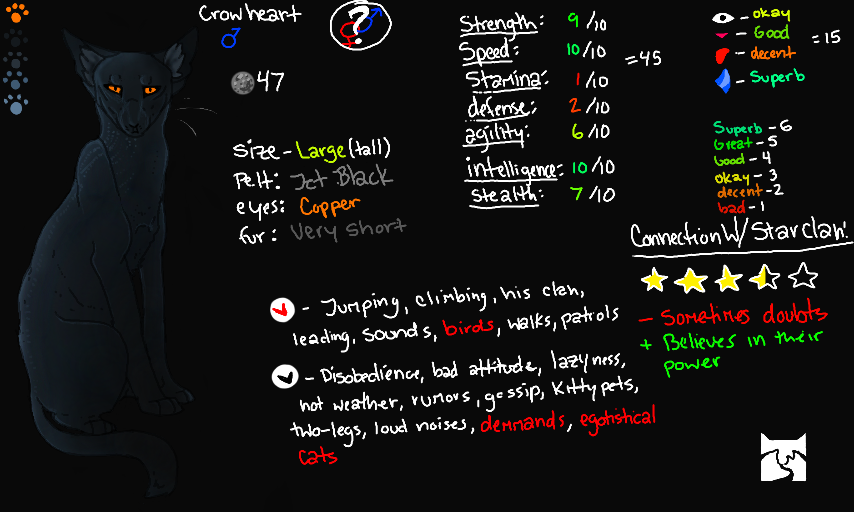 Crowheart
?
47
size - Large (tall)
Pelt: Jet Black
eyes: Copper
fur: Very short
Strength: 9/10
Speed: 10/10
Stamina: 1/10
defense: 2/10
agility: 6/10
intelligence: 10/10
Stealth: 7/10
=45
- okay
- Good
- decent
- Superb
=15
Superb - 6
Great - 5
Good - 4
okay - 3
decent - 2
bad - 1
Connection W/ Starclan:
- Sometimes doubts
+ Believes in their
power
- Jumping, climbing, his clan,
leading, sounds, birds, walks, patrols
- Disobedience, bad attitude, lazyness,
hot weather, rumors, gossip, Kittypets,
two-legs, loud noises, demmands, egotistical
cats